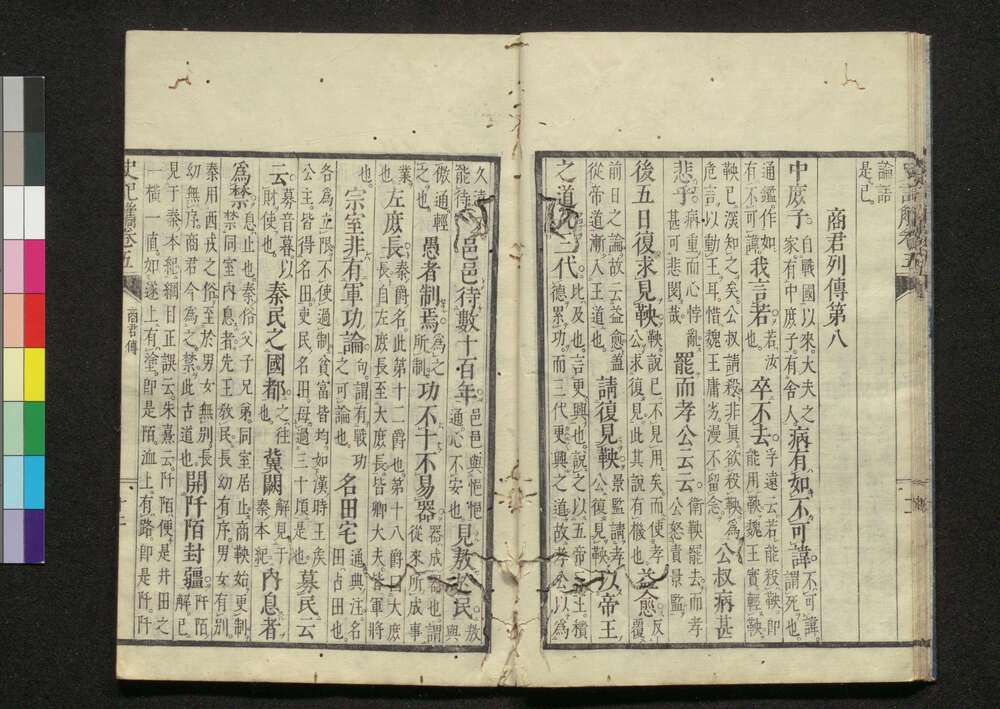 論語
是已。
商君列傳第八
中庶子。自戰國以來。大夫之
家有中庶子。有舍人。病有如不可諱。不可諱。
謂死也。
通鑑。作如
有不可諱。我言若。若汝
也。卒不去孚遠云。若能殺鞅。即
能用鞅。魏王實輕鞅
鞅已深知之矣。公叔請殺。非眞欲殺鞅。爲
危言。以動王耳。惜魏王庸劣。漫不留念。公叔病甚
悲乎。病重而心悖亂。
甚可悲閔哉。罷而孝公云云衛鞅罷去。而孝
公怒責景監。
後五日復求見鞅鞅說已不見用矣。而使孝
公求復見。此其說有機也。益愈反
覆
前日之論。故云益愈。蓋
從帝道漸入王道也。請復見鞅景監請孝
公復見鞅。以帝王
之道比三代比及也。言更興也。說之以五帝三王。積
德累功。而三代更興之道。故孝公以爲
久遠
能待邑邑待數十百年。邑邑與悒悒
通心不安也見敖於民敖
與
傲通輕
之也。愚者制焉爲之
所制功不十不易器器成器也。謂
從來所成事
業。
也。左庶長秦爵名。此第十二爵也。第十八爵曰大庶
長。自左庶長至大庶長。皆卿大夫。皆軍將
也。宗室非有軍功論句。謂有戰功
之可論也。名田宅通典注。名
田占田也。
各爲立限。不使過制。貧富皆均。如漢時王矦
公主。皆得名田縣道吏民名田。毋過三十頃。是也募民云
云。募音暮。以
財使也。秦民之國都之往
也。冀闕解見于
秦本紀內息者
爲禁息止也。秦俗父子兄弟。同室居止。商鞅始更制
禁同室內息者。先王敎民。長幼有序。男女有別
秦用西戎之俗。至於男女無別。長
幼無序。商君今爲之禁。此古道也。開阡陌封疆。阡陌
解已
見于秦本紀。綱目正誤云。朱熹云。阡陌便是井田之
一橫一直。如遂上有塗。即是陌。洫上有路。即是阡
史記觿卷五
商君傳